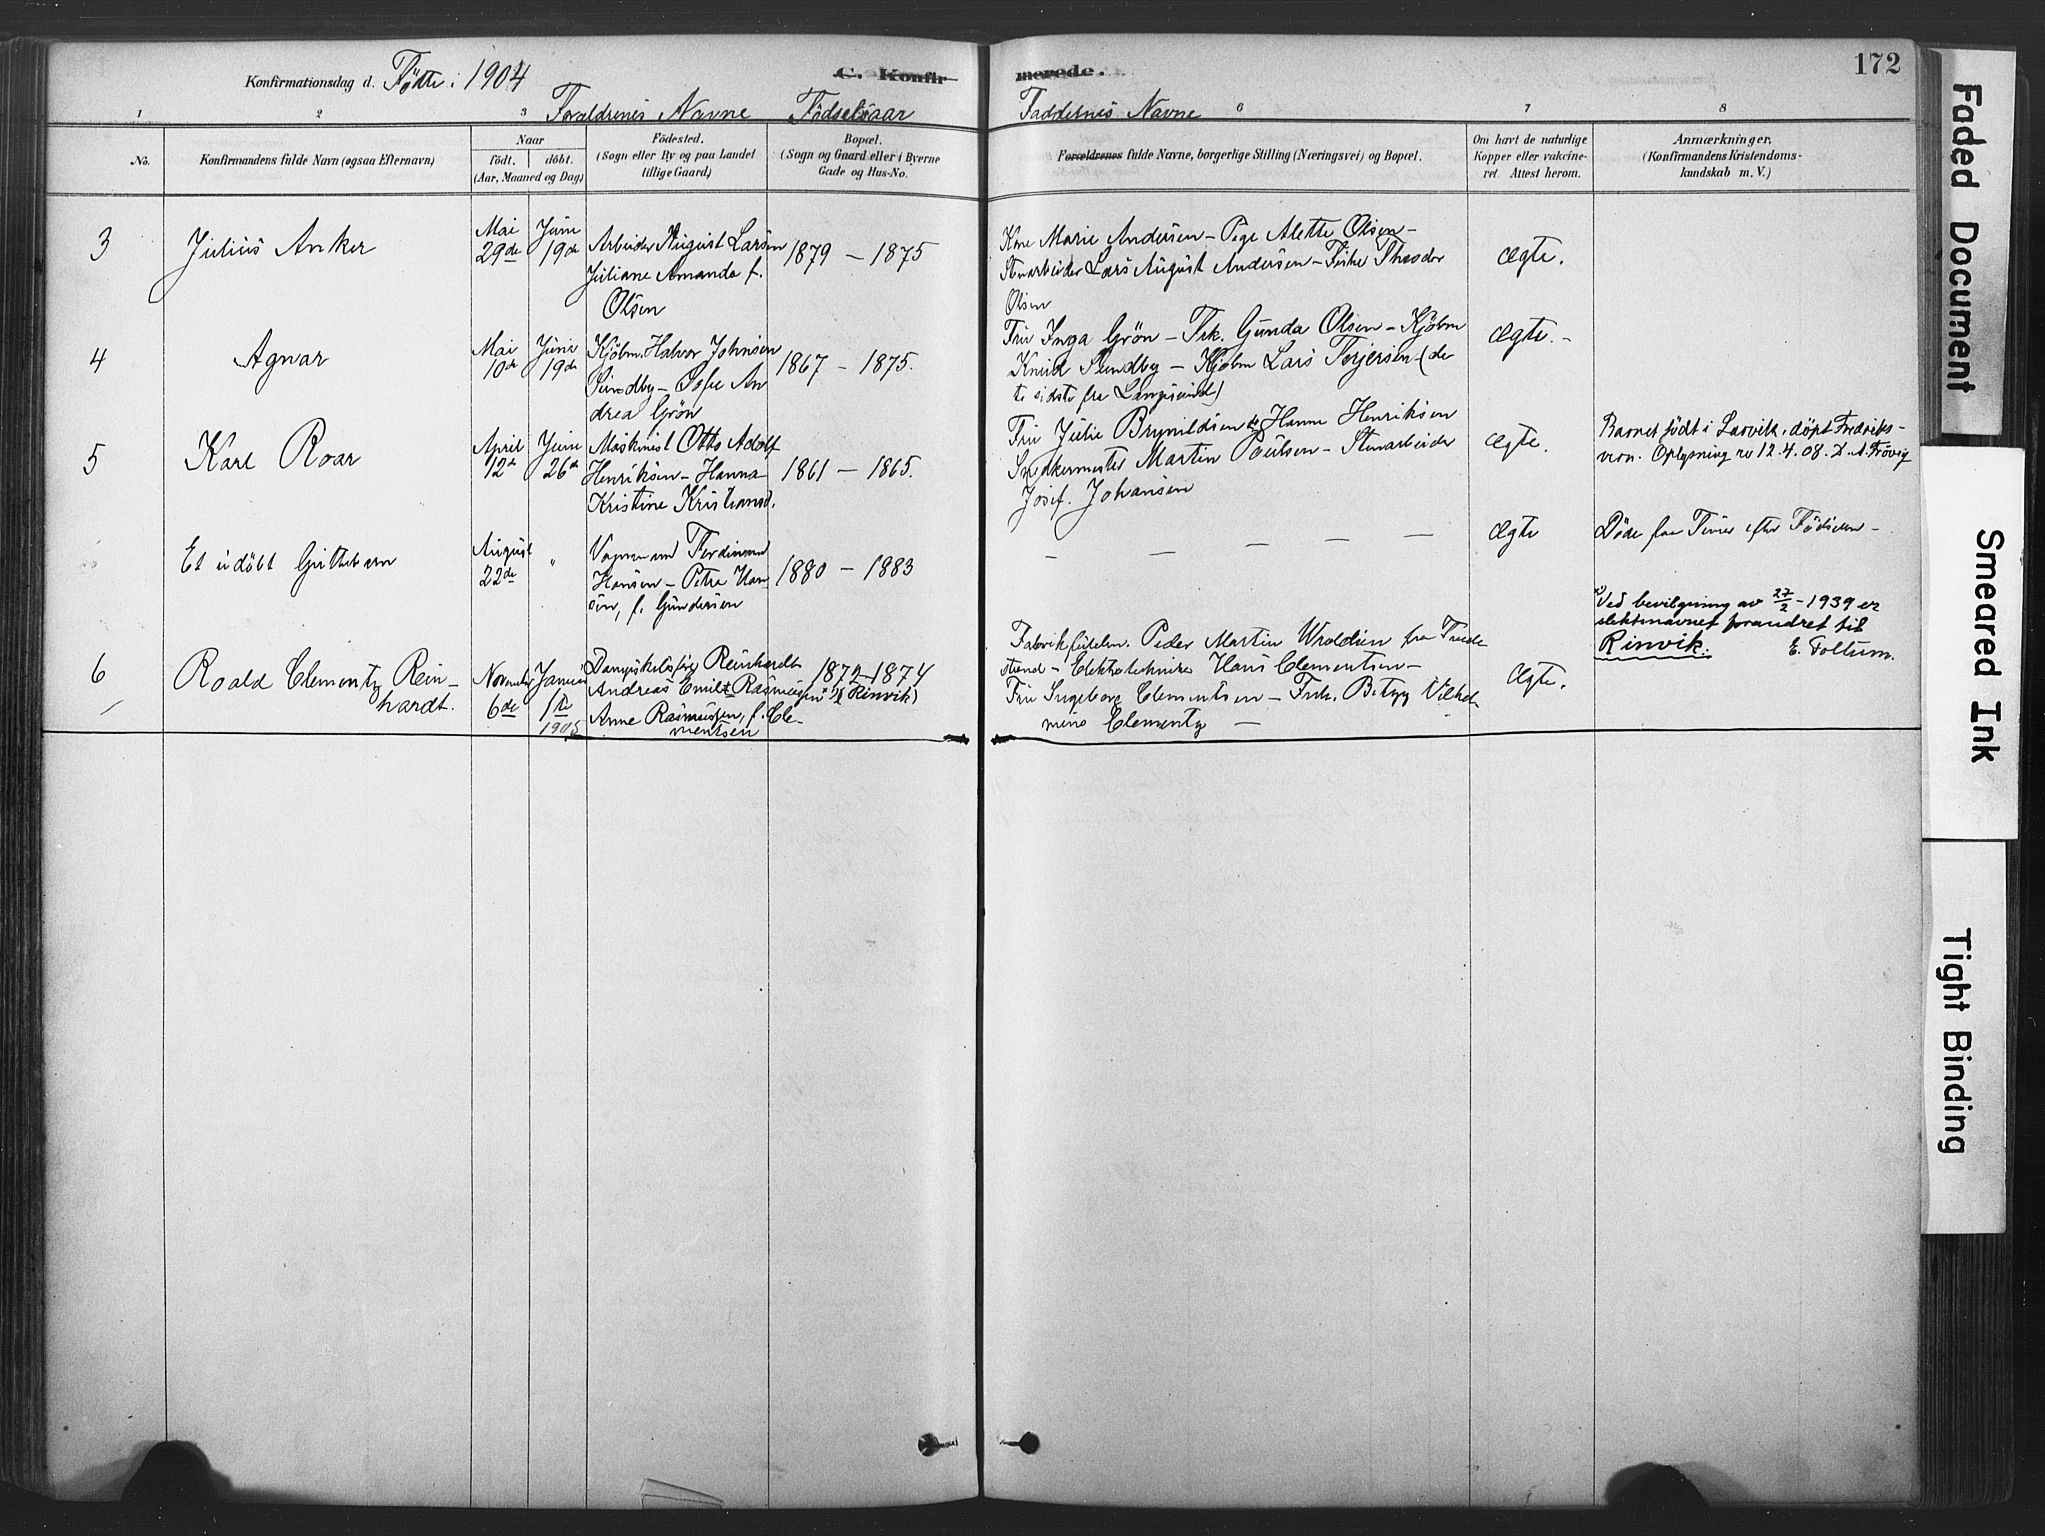 172
Konfirmationsdag d. Födte i 1904
C. Konfirmerede.
1 2 3 Forældrenes Navne Födselsaar Faddernes Navne 6 7 8
No.
Konfirmandens fulde Navn (ogsaa Efternavn)
Naar
födt. döbt.
(Aar, Maaned og Dag)
Födested.
(Sogn eller By og paa Landet
tillige Gaard)
Bopæl.
(Sogn og Gaard eller i Byerne
Gade og Hus-No.
Forældrenes fulde Navne, borgerlige Stilling (Næringsvei) og Bopæl.
Om havt de naturlige
Kopper eller vakcine-
ret. Attest herom.
Anmærkninger.
(Konfirmandens Kristendoms-
kundskab m. V.)
3
Julius Anker
Mai
29de
Juni
19de
Arbeider August Larsen
Juliane Amanda f.
Olsen
1879 – 1875
Kone Marie Andersen – Pige Alette Olsen –
Stenarbeider Lars August Andersen – Theodor
Olsen
Ægte.
4
Agnar
Mai
10de
Juni
19de
Kjøbm. Halvor Johnsen
Sundby – Sofie An
drea Grön
1867 – 1875.
Fru Inga Grön – Frk. Gunda Olsen – Kjöbm
Knud Sundby – Kjöbm Lars Terjesen (de
to sidste fra Langesund)
Ægte. –
5
Kare Roar
April
12te
Juni
26de
Maskinist Otto Adolf
Henriksen – Hanna
Kristine Kristiansd.
1861 – 1865.
Fru Julie Brynildsen Hanne Henriksen
Snekermester Martin Paulsen – Stenarbeider
Josef. Johansen
Ægte.
Barnet født i Larvik, døpt Fredriks-
vern. Oplysning av 12.4.08.
Et udöbt Guttebarn
August
22de
"
Vognmand Ferdinand
Hansen – Petra Han
sen, f. Gundersen
1880 – 1883
– – – – –
Ægte
Döde faa Timer efter Födselen –
6
Roald Clementz Rein-
hardt.
November
6de
Januar
1ste
1905
Dampskibsförer Reinhardt
Andreas Emil Rasmussen (Rinvik)
Anne Rasmussen, f. Cle-
mentsen
1872 – 1874
Peder Martin fra Tnede
strand – Elektrotekniker Hans Clementsen –
Fru Ingeborg Clementsen – Frk. Betzy Vilhel
mine Clementz –
Ægte.
x) Ved bevilgning av 27/2 – 1939 er
slektsnavnet forandret til
Rinvik. E. Foltum.
Faded Document
Smeared Ink
Tight Binding